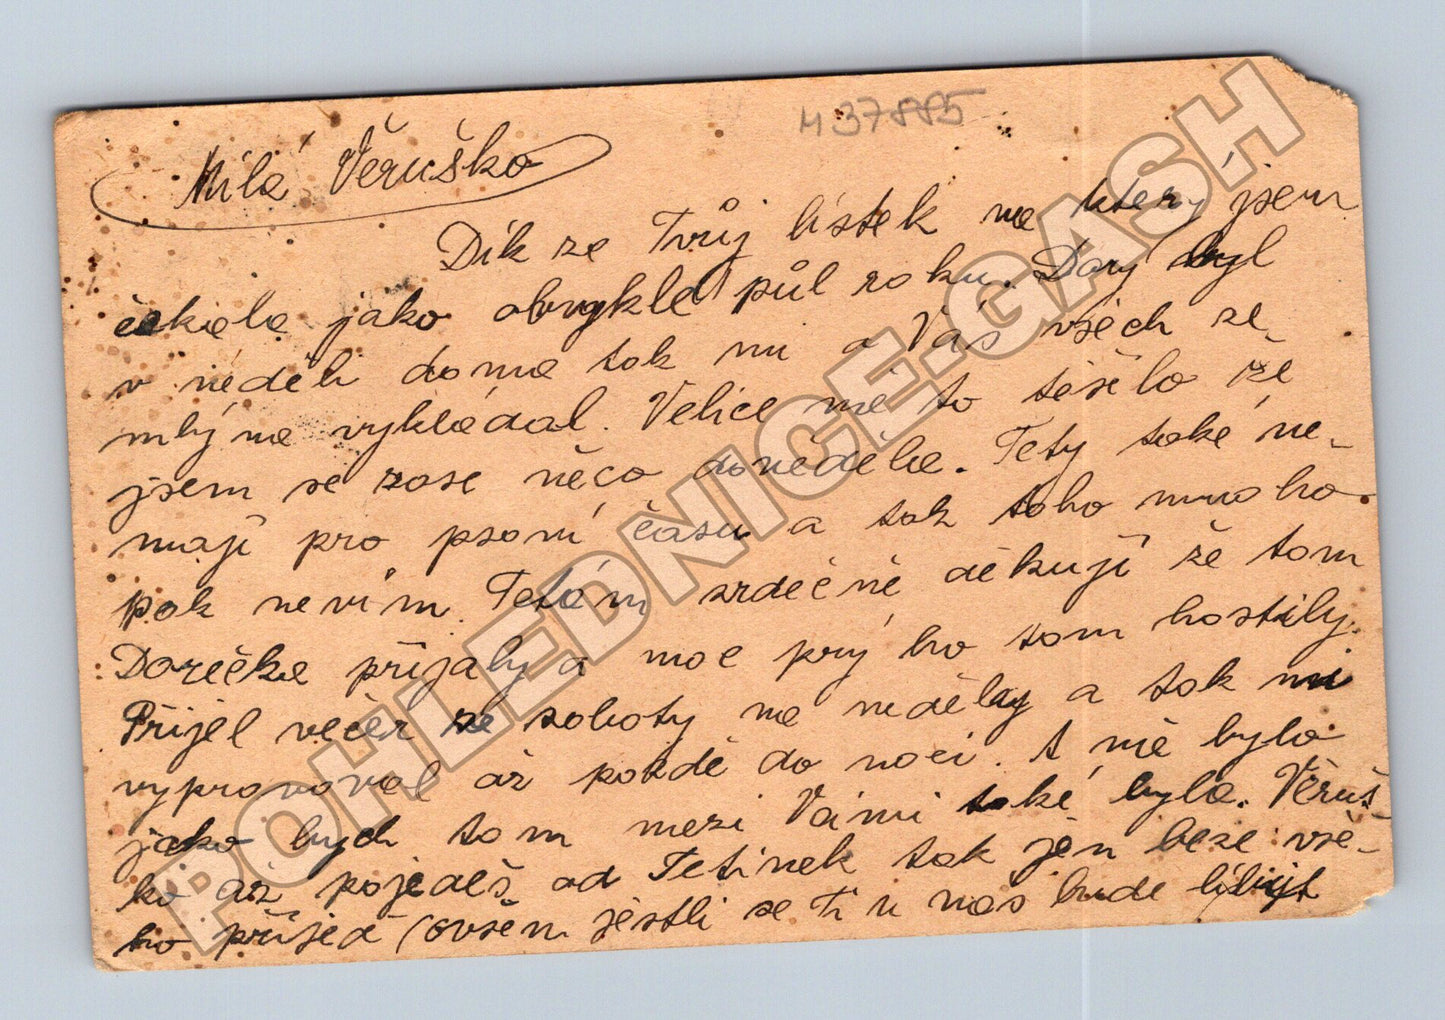 437885
Milá Věruško
Dík za Tvůj lístek na který jsem
čekala jako obvykle půl roku. Dary byl
v neděli doma tak mi a Vás všech ze
mlýna vykládal. Velice mě to těšilo že
jsem se zase něco dověděla. Tety také ne-
mají pro psaní času a tak toho mnoho
pak nevím. Tetám srdečně děkuji že tam
Darečka přijaly a moc prý ho tam hostily.
Přijel večer ze soboty na neděly a tak mi
vypravoval až pozdě do noci. A mě bylo
jako bych tam mezi Vámi také byla. Věruš
ko až pojedeš od Tetinek tak jen beze vše-
ho přijeď (ovšem jestli se Ti u nás bude líbit
POHLEDNICE.GASH